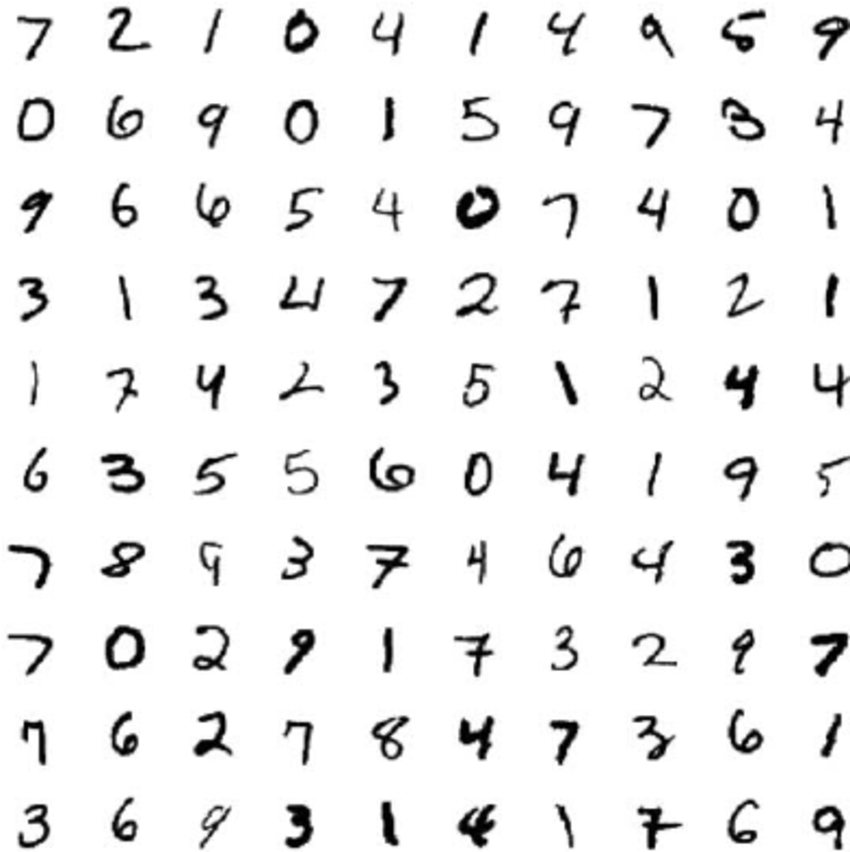 7 2 1 0 4 1 4 9 5 9
0 6 9 0 1 5 9 7 3 4
9 6 6 5 4 0 7 4 0 1
3 1 3 4 7 2 7 1 2 1
1 7 4 2 3 5 1 2 4 4
6 3 5 5 6 0 4 1 9 5
7 8 9 3 7 4 6 4 3 0
7 0 2 9 1 7 3 2 9 7
7 6 2 7 8 4 7 3 6 1
3 6 9 3 1 4 1 7 6 9